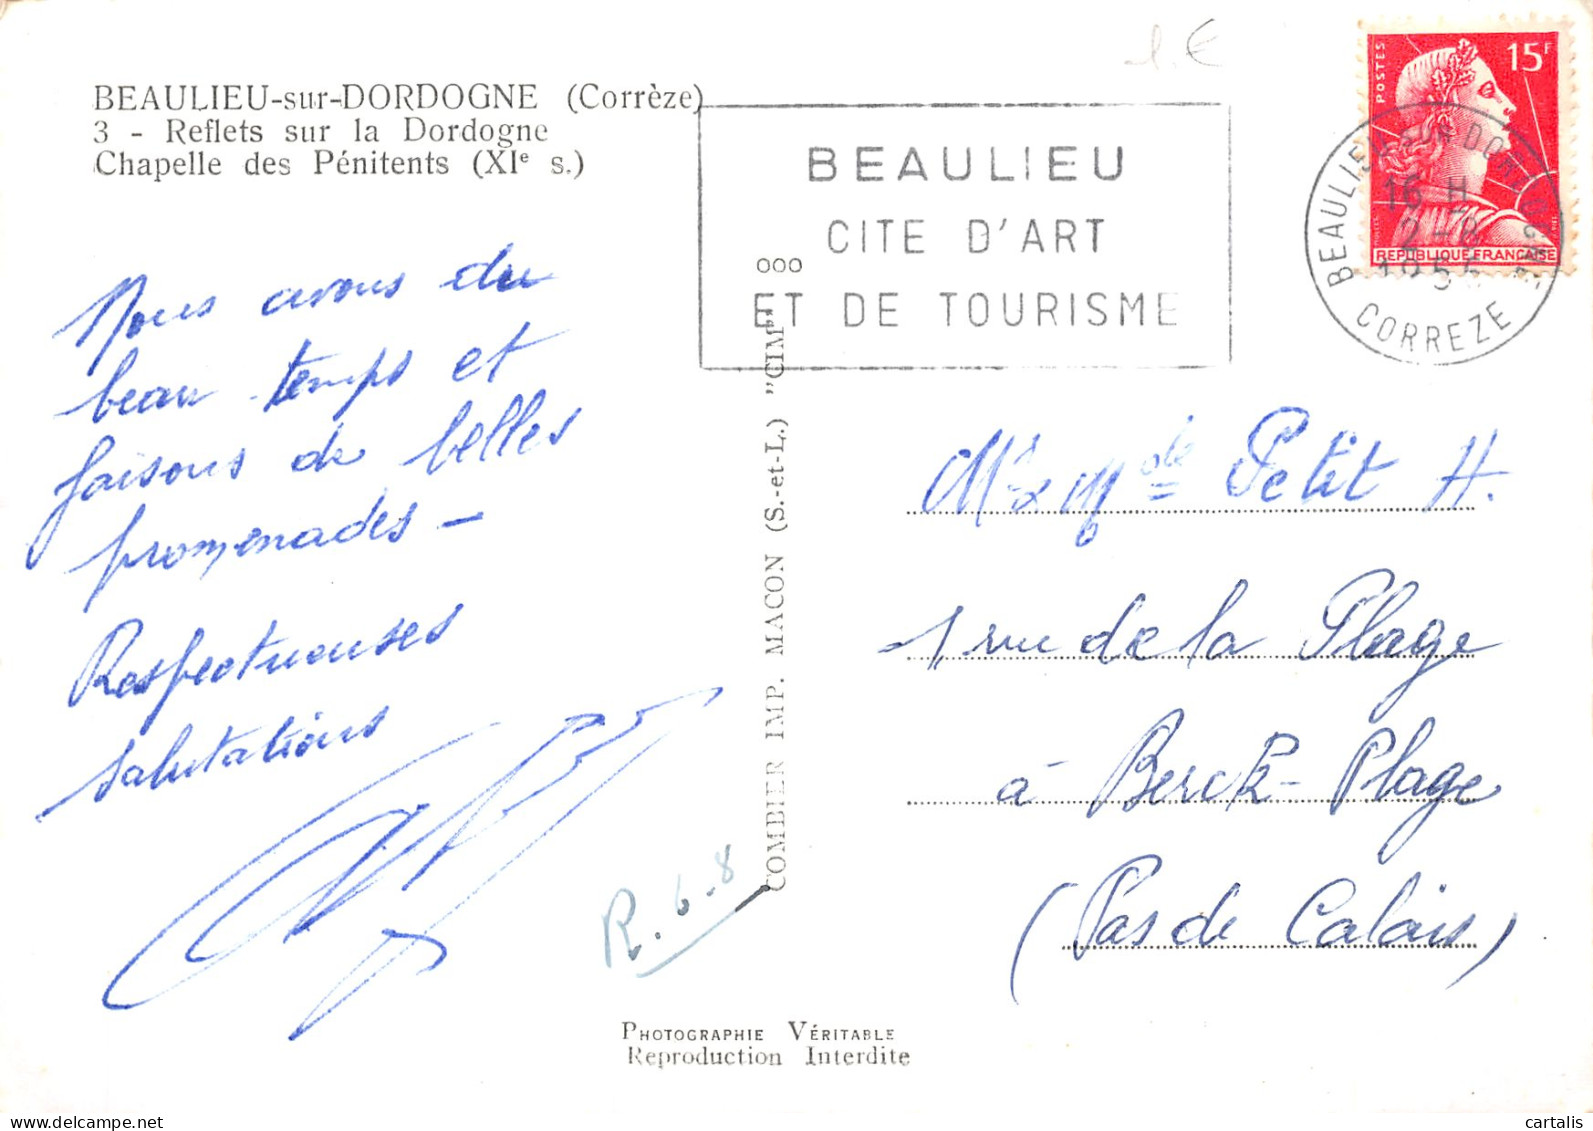 1.€
BEAULIEU-sur-DORDOGNE (Corrèze)
3 - Reflets sur la Dordogne
Chapelle des Pénitents (XIᵉ s.)
BEAULIEU
CITE D'ART
ET DE TOURISME
15F
POSTES
REPUBLIQUE FRANCAISE
BEAULIEU SUR DORDOGNE
16 H
2-8
1955
CORREZE
Nous avons du
beau temps et
faisons de belles
promenades –
Respectueuses
salutations
R. 6-8
ooo
COMBIER IMP. MACON (S.-et-L.) "CIM"
Mr & Mde Petit H.
1 rue de la Plage
à Berck-Plage
(Pas de Calais)
PHOTOGRAPHIE VÉRITABLE
Reproduction Interdite
cartalis